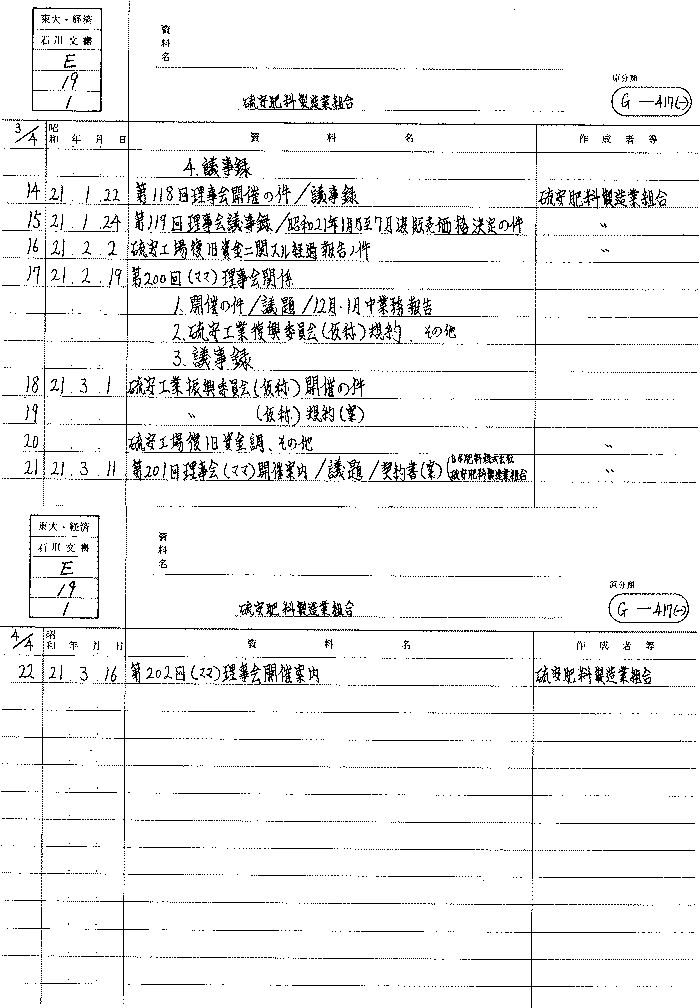 東大・経済
石川文書
E
19
1
資料名
硫安肥料製造業組合
原分類
G-417(一)
3/4 昭和 年 月 日 資料名 作成者等
4. 議事録
14 21. 1. 22 第118回理事会開催の件/議事録 硫安肥料製造業組合
15 21. 1. 24 第119回理事会議事録/昭和21年1月乃至7月渡販売価格決定の件 〃
16 21. 2. 2 硫安工場復旧資金ニ関スル経過報告ノ件 〃
17 21. 2. 19 第200回(ママ)理事会関係
1. 開催の件/議題/12月・1月中業務報告
2. 硫安工業復興委員会(仮称)規約、その他
3. 議事録
18 21. 3. 1 硫安工業振興委員会(仮称)開催の件
19 〃 (仮称)規約(案)
20 硫安工場復旧資金調、その他 〃
21 21. 3. 11 第201回理事会(ママ)開催案内/議題/契約書(案)(日本肥料株式会社 硫安肥料製造業組合 〃
東大・経済
石川文書
E
19
1
資料名
硫安肥料製造業組合
原分類
G-417(一)
4/4 昭和 年 月 日 資料名 作成者等
22 21. 3. 16 第202回(ママ)理事会開催案内 硫安肥料製造業組合